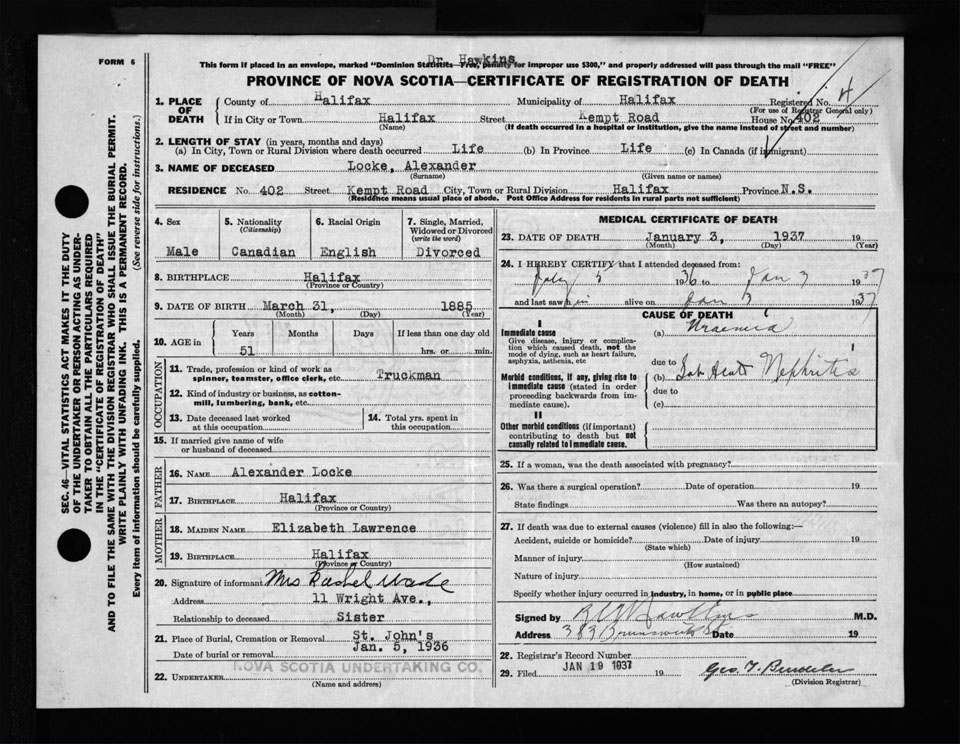 FORM 6
Dr. Hawkins
This form if placed in an envelope, marked "Dominion Statistics—Free, penalty for improper use $300," and properly addressed will pass through the mail "FREE"
PROVINCE OF NOVA SCOTIA—CERTIFICATE OF REGISTRATION OF DEATH
1. PLACE OF DEATH
County of Halifax Municipality of Halifax Registered No. 4
(For use of Registrar General only)
If in City or Town Halifax Street Kempt Road House No. 402
(Name) (If death occurred in a hospital or institution, give the name instead of street and number)
2. LENGTH OF STAY (in years, months and days)
(a) In City, Town or Rural Division where death occurred Life (b) In Province Life (c) In Canada (if immigrant)
3. NAME OF DECEASED Locke, Alexander
(Surname) (Given name or names)
RESIDENCE No. 402 Street Kempt Road City, Town or Rural Division Halifax Province N.S.
(Residence means usual place of abode. Post Office Address for residents in rural parts not sufficient)
4. Sex
Male
5. Nationality
(Citizenship)
Canadian
6. Racial Origin
English
7. Single, Married, Widowed or Divorced
(write the word)
Divorced
8. BIRTHPLACE Halifax
(Province or Country)
9. DATE OF BIRTH March 31, 1885
(Month) (Day) (Year)
10. AGE in
Years Months Days If less than one day old
51 hrs. or min.
OCCUPATION
11. Trade, profession or kind of work as
spinner, teamster, office clerk, etc. Truckman
12. Kind of industry or business, as cotton-
mill, lumbering, bank, etc.
13. Date deceased last worked
at this occupation
14. Total yrs. spent in
this occupation
15. If married give name of wife
or husband of deceased
FATHER
16. NAME Alexander Locke
17. BIRTHPLACE Halifax
(Province or Country)
MOTHER
18. MAIDEN NAME Elizabeth Lawrence
19. BIRTHPLACE Halifax
(Province or Country)
20. Signature of informant Mrs Rachel Wade
Address 11 Wright Ave.,
Relationship to deceased Sister
21. Place of Burial, Cremation or Removal St. John's
Date of burial or removal Jan. 5, 1936
NOVA SCOTIA UNDERTAKING CO.
22. UNDERTAKER
(Name and address)
MEDICAL CERTIFICATE OF DEATH
23. DATE OF DEATH January 3, 1937 19
(Month) (Day) (Year)
24. I HEREBY CERTIFY that I attended deceased from:
July 5 1936 to Jan 3 1937
and last saw him alive on Jan 3 1937
CAUSE OF DEATH
I
Immediate cause
Give disease, injury or complica-
tion which caused death, not the
mode of dying, such as heart failure,
asphyxia, asthenia, etc
(a) Uraemia
due to
Morbid conditions, if any, giving rise to
immediate cause (stated in order
proceeding backwards from im-
mediate cause).
(b) Sub Acute Nephritis
due to
(c)
II
Other morbid conditions (if important)
contributing to death but not
causally related to immediate cause.
25. If a woman, was the death associated with pregnancy?
26. Was there a surgical operation? Date of operation 19
State findings Was there an autopsy?
27. If death was due to external causes (violence) fill in also the following:—
Accident, suicide or homicide? Date of injury 19
(State which)
Manner of injury
(How sustained)
Nature of injury
Specify whether injury occurred in industry, in home, or in public place
Signed by Hawkins M.D.
Address 383 Brunswick St Date 19
28. Registrar's Record Number
JAN 19 1937
29. Filed 19 Geo.
(Division Registrar)
SEC. 46—VITAL STATISTICS ACT MAKES IT THE DUTY
OF THE UNDERTAKER OR PERSON ACTING AS UNDER-
TAKER TO OBTAIN ALL THE PARTICULARS REQUIRED
IN THE "CERTIFICATE OF REGISTRATION OF DEATH"
AND TO FILE THE SAME WITH THE DIVISION REGISTRAR WHO SHALL ISSUE THE BURIAL PERMIT.
WRITE PLAINLY WITH UNFADING INK. THIS IS A PERMANENT RECORD.
Every item of information should be carefully supplied. (See reverse side for instructions.)